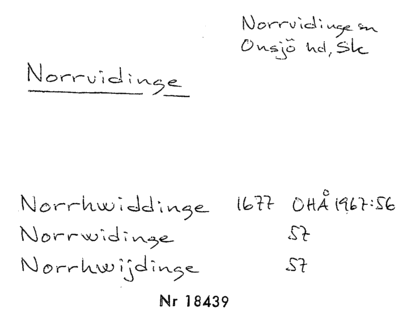 Norrvidinge sn
Onsjö hd, Sk
Norrvidinge
Norrhwiddinge 1677 OHÅ 1967:56
Norrwidinge 57
Norrhwijdinge 57
Nr 18439